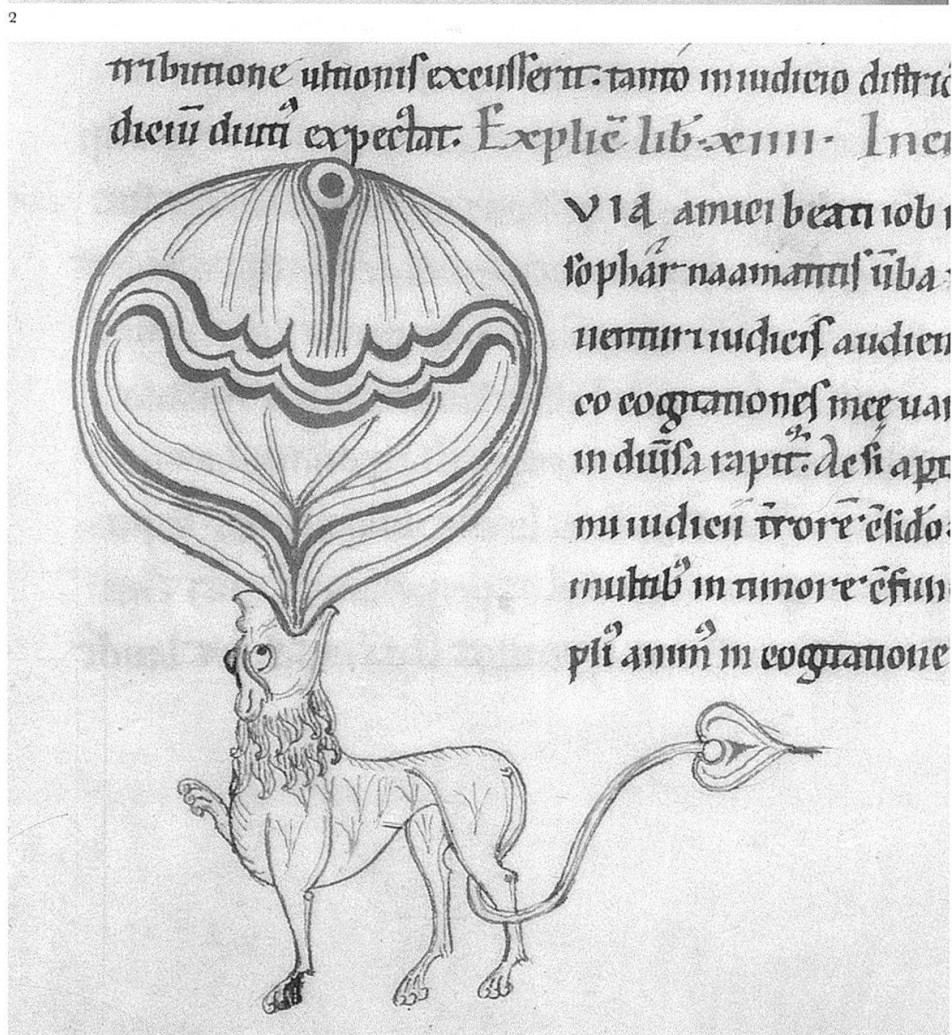 2
tributione ultionis excusserit. tanto in iudicio distric
diciū duriꝰ expectat. Explic̄ lib. xiiii. Inci
VIA amici beati iob
sophar naamatitis ūba
venturi iudicis audien
co cogitationes meę uar
in diūsa rapit. Ac si apt
mi iudicii t̄rorē c̄sido
multibꝰ in timore c̄fun
pliꝰ animꝰ in cogitatione